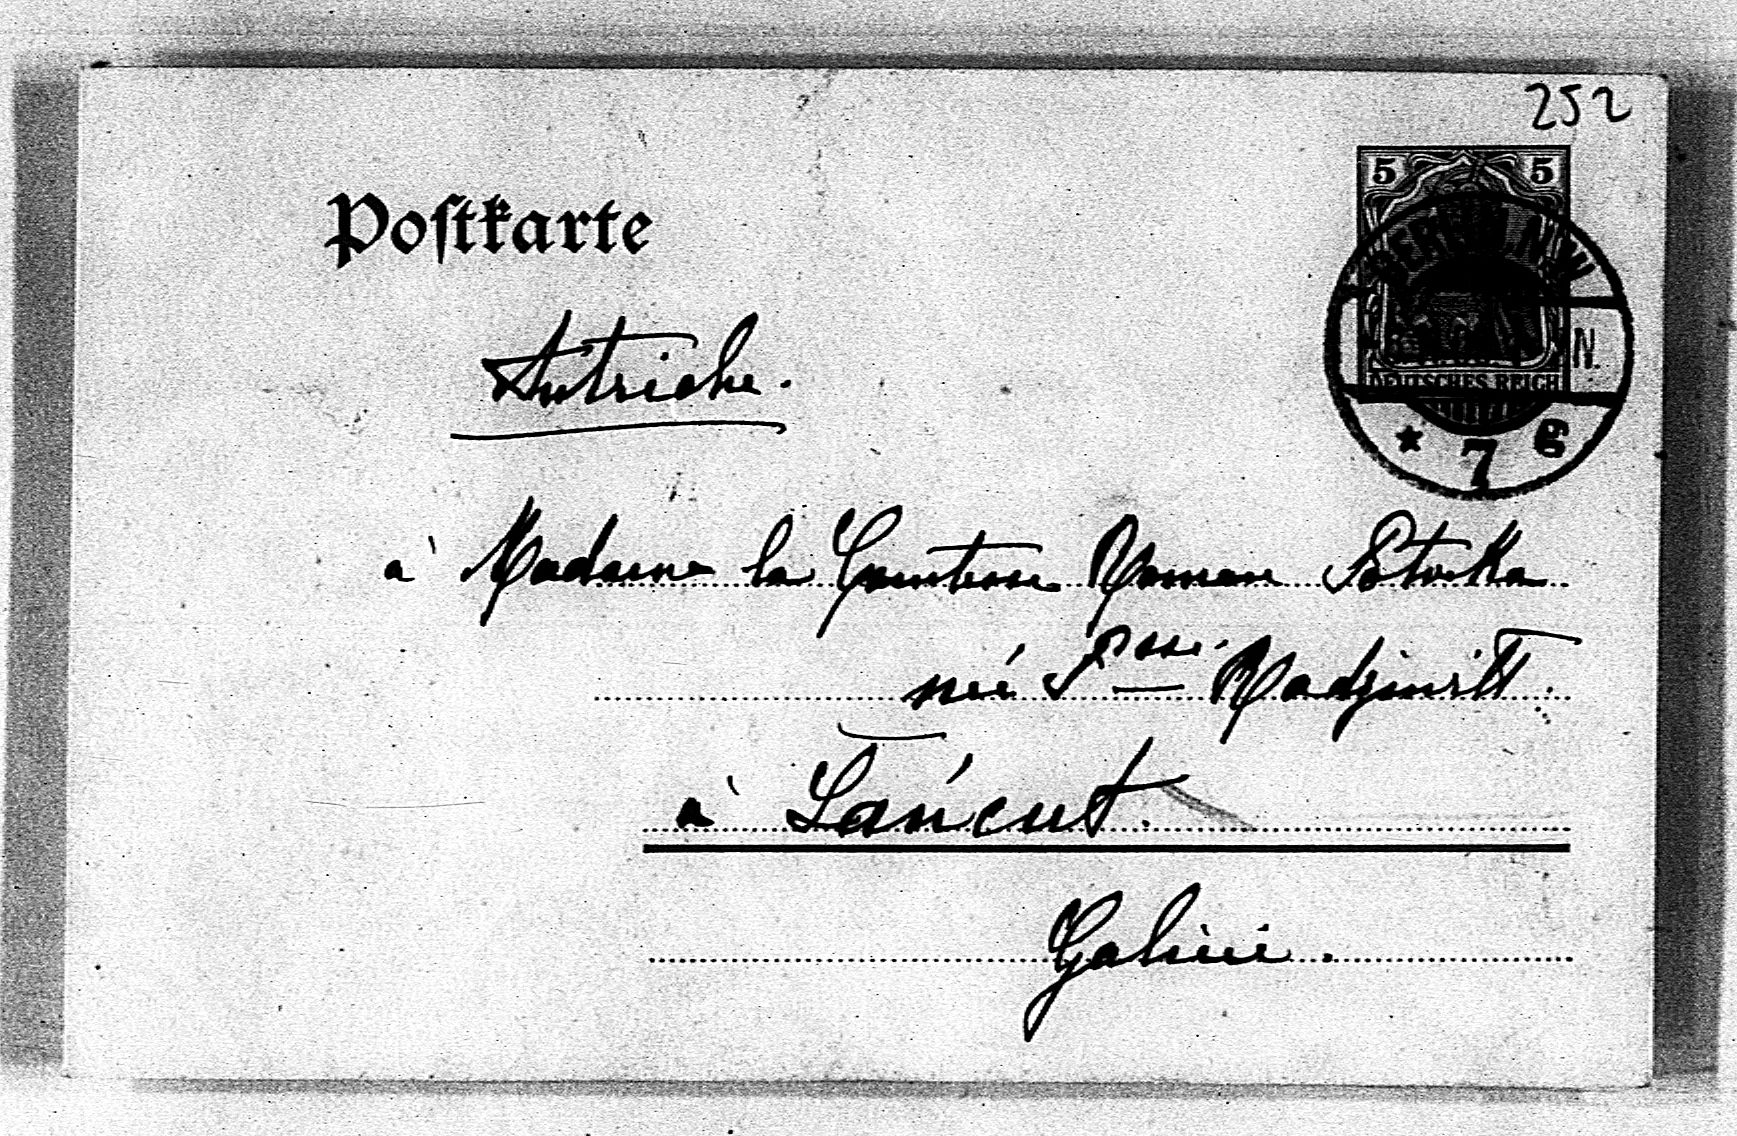 252
Postkarte
5 5
BERLIN N.W.
N.
DEUTSCHES REICH
* 7 g
Autriche.
à Madame la Comtesse Roman Potocka
née Psse Radziwill
à Łańcut.
Galicie.